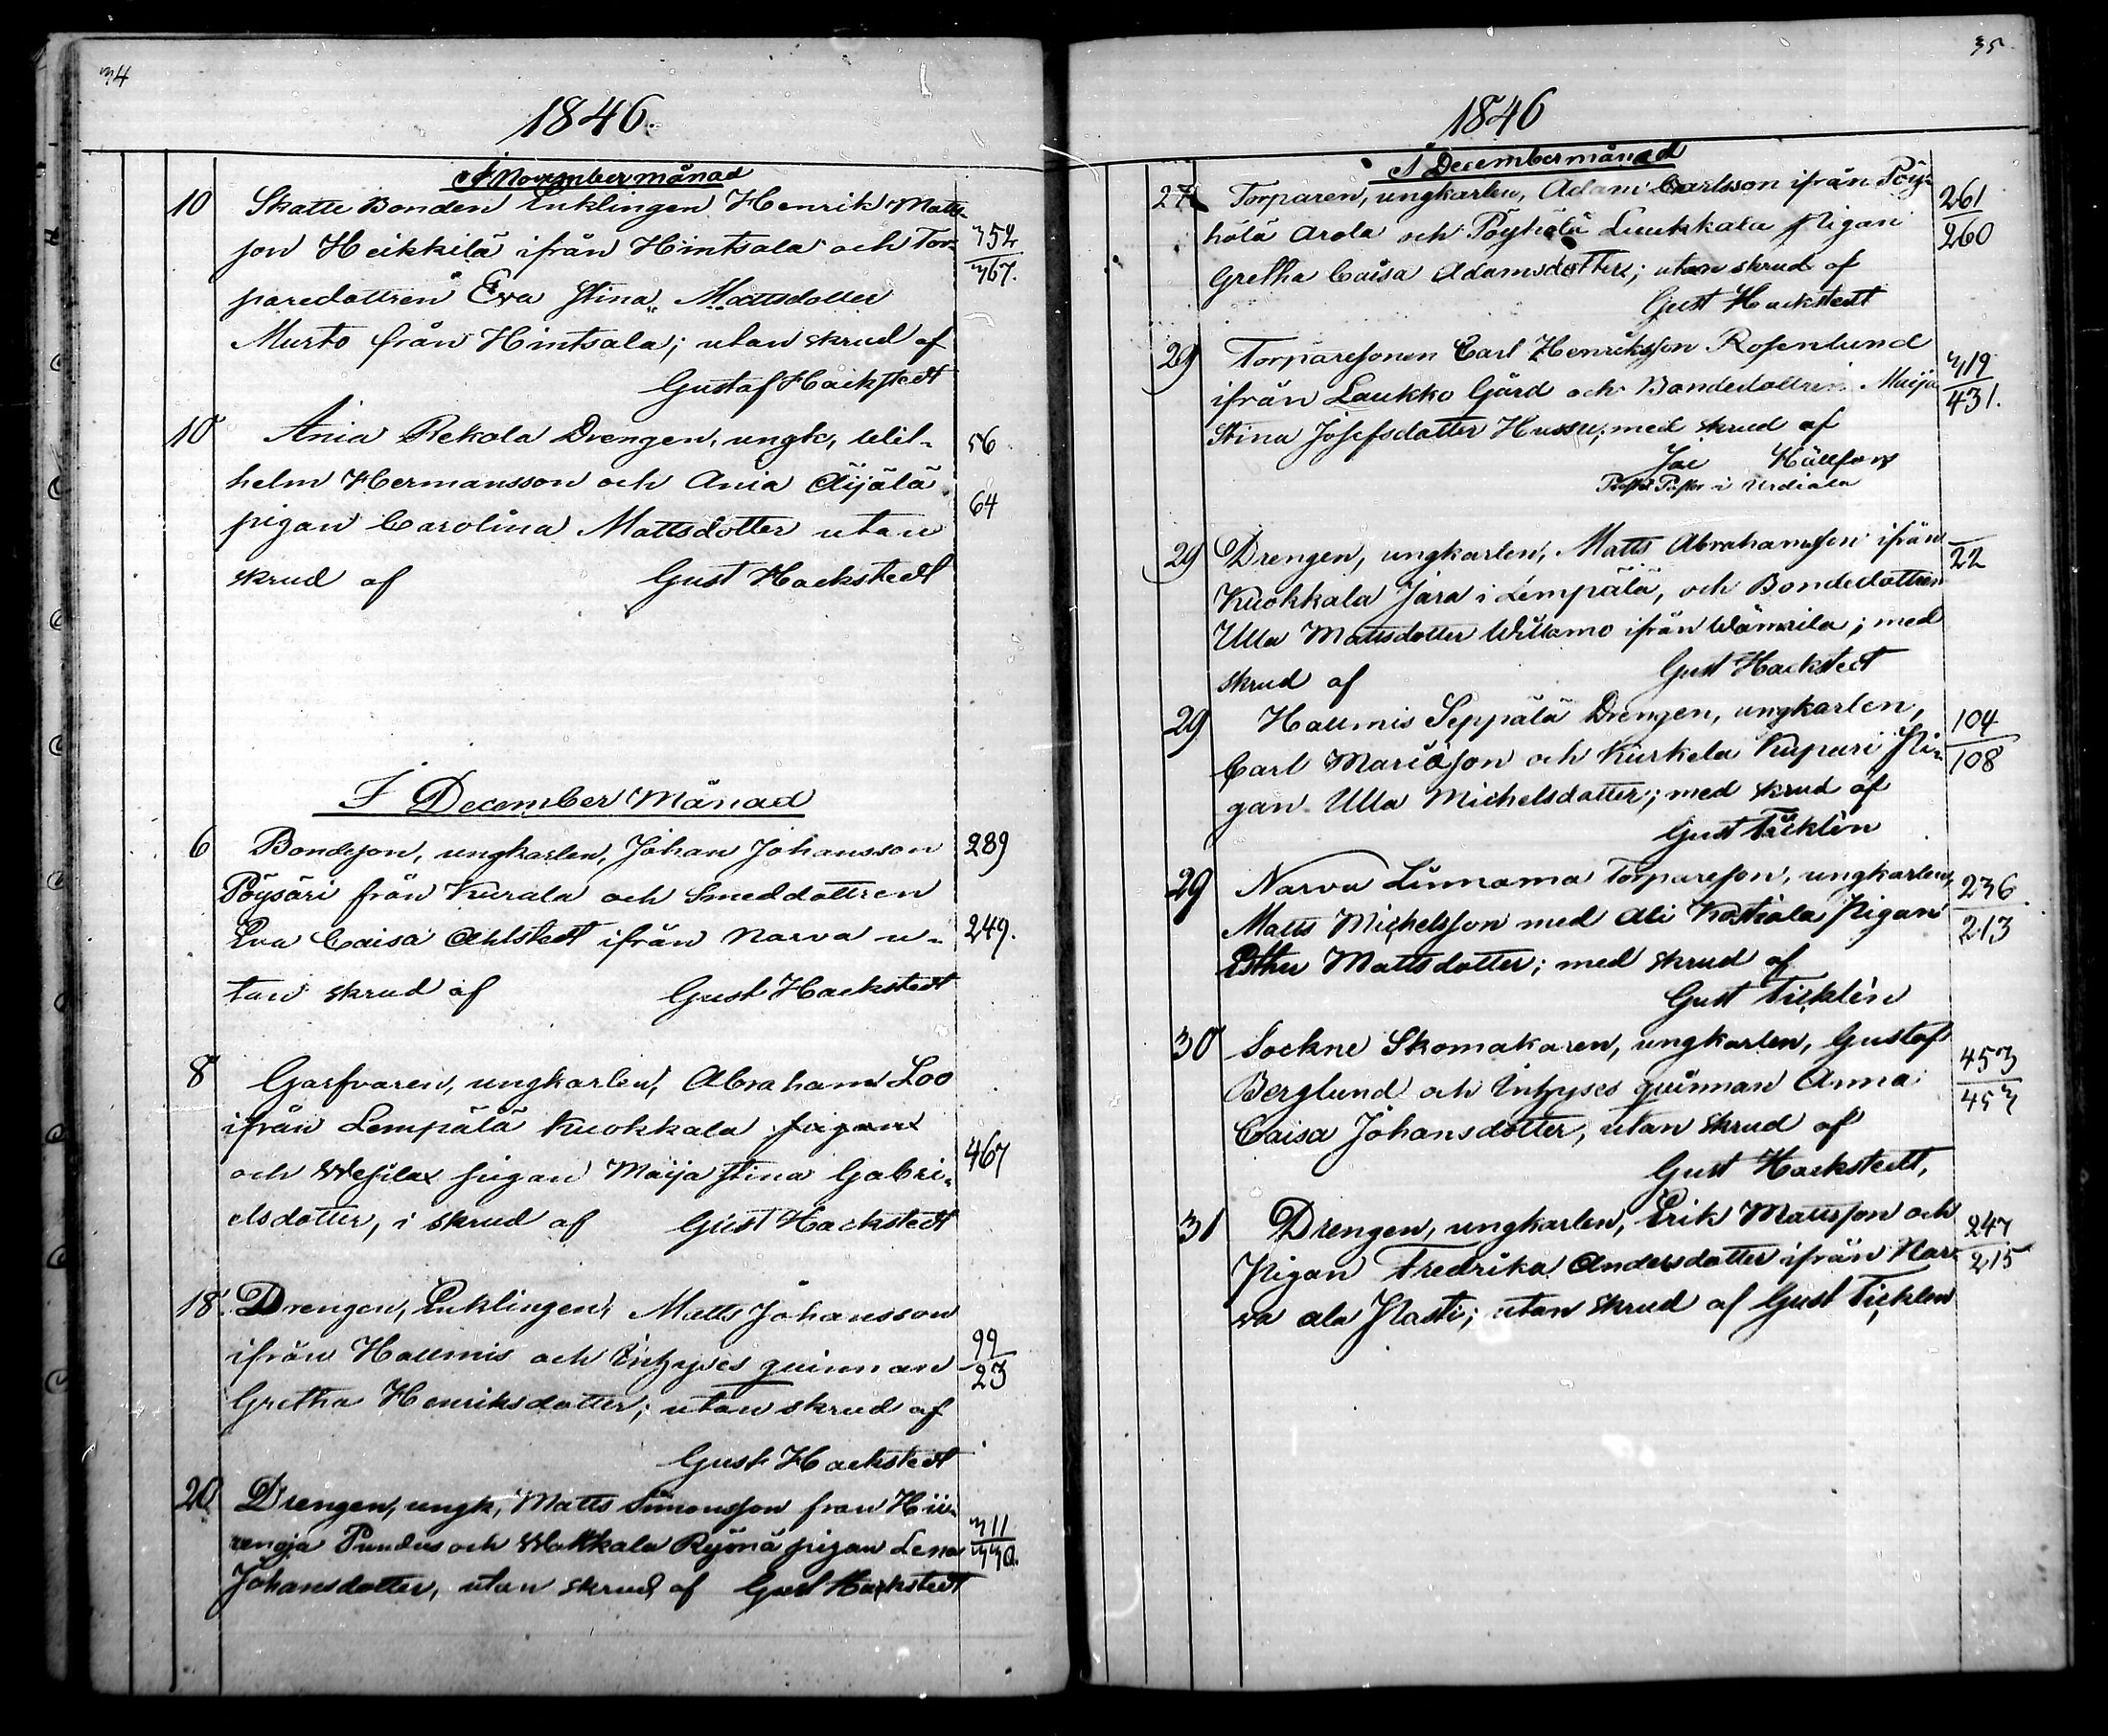 34
1846.
I November månad
10 Skatte Bonden Enklingen Henrik Matts-
son Heikkilä ifrån Hintsala och Tor- 352
paredottren Eva Stina Mattsdotter 367.
Murto från Hintsala; utan skrud af
Gustaf Hackstedt
10 Ania Rekola Drengen, ungk, Wil- 56
helm Hermansson och Ania Äijälä
pigan Carolina Mattsdotter utan 64
skrud af Gust Hackstedt
I December Månad
6 Bondeson, ungkarlen, Johan Johansson 289
Pöysäri från Kurala och Smeddottren
Eva Caisa Ahlstedt ifrån Narva u- 249.
tan skrud af Gust Hackstedt
8 Garfvaren, ungkarlen, Abraham Loo
ifrån Lempälä Kuokkala pigan
och Wesilax pigan Maija Stina Gabri- 467
elsdotter, i skrud af Gust Hackstedt
18. Drengen, Enklingen, Matts Johansson
ifrån Hallmis och Inhyses quinnan 99
Gretha Henriksdotter; utan skrud af 23
Gust Hackstedt
20 Drengen, ungk, Matts Simonsson fran Hii-
renoja Pundus och Wakkala Rijmä pigan Lena 311
Johansdotter, utan skrud af Gust Hackstedt 330.
35
1846
I December månad
27 Torparen, ungkarlen, Adam Carlsson ifrån Pöy- 261
hölä Arola och Pöyhölä Luukkala Pigan 260
Gretha Caisa Adamsdotter; utan skrud af
Gust Hackstedt
29 Torparesonen Carl Henriksson Rosenlund
ifrån Laukko Gård och Bondedottren Maija 419
Stina Josefsdotter Hussu, med skrud af 431.
Jac Hällfors
i Urdiala
29 Drengen, ungkarlen, Matts Abrahamsson ifrån
Kuokkala Jara i Lempälä, och Bondedottren 22
Ulla Mattsdotter Willamo ifrån Wännilä; med
skrud af Gust Hackstedt
29 Hallmis Seppälä Drengen, ungkarlen, 104
Carl Mariæson och Kurkela Kupari Pi- 108
gan Ulla Michelsdotter; med skrud af
Gust Ticklén
29 Narva Linnama Torpareson, ungkarlen, 236
Matts Michelsson med Ali Kostiala Pigan 213
Esther Mattsdotter; med skrud af
Gust Ticklén
30 Sockne Skomakaren, ungkarlen, Gustaf 453
Berglund och Inhyses quinnan Anna 453
Caisa Johansdotter, utan skrud af
Gust Hackstedt,
31 Drengen, ungkarlen, Erik Mattsson och 247
Pigan Fredrika Andersdotter ifrån Nar- 215
va ala Nasti; utan skrud af Gust Ticklen